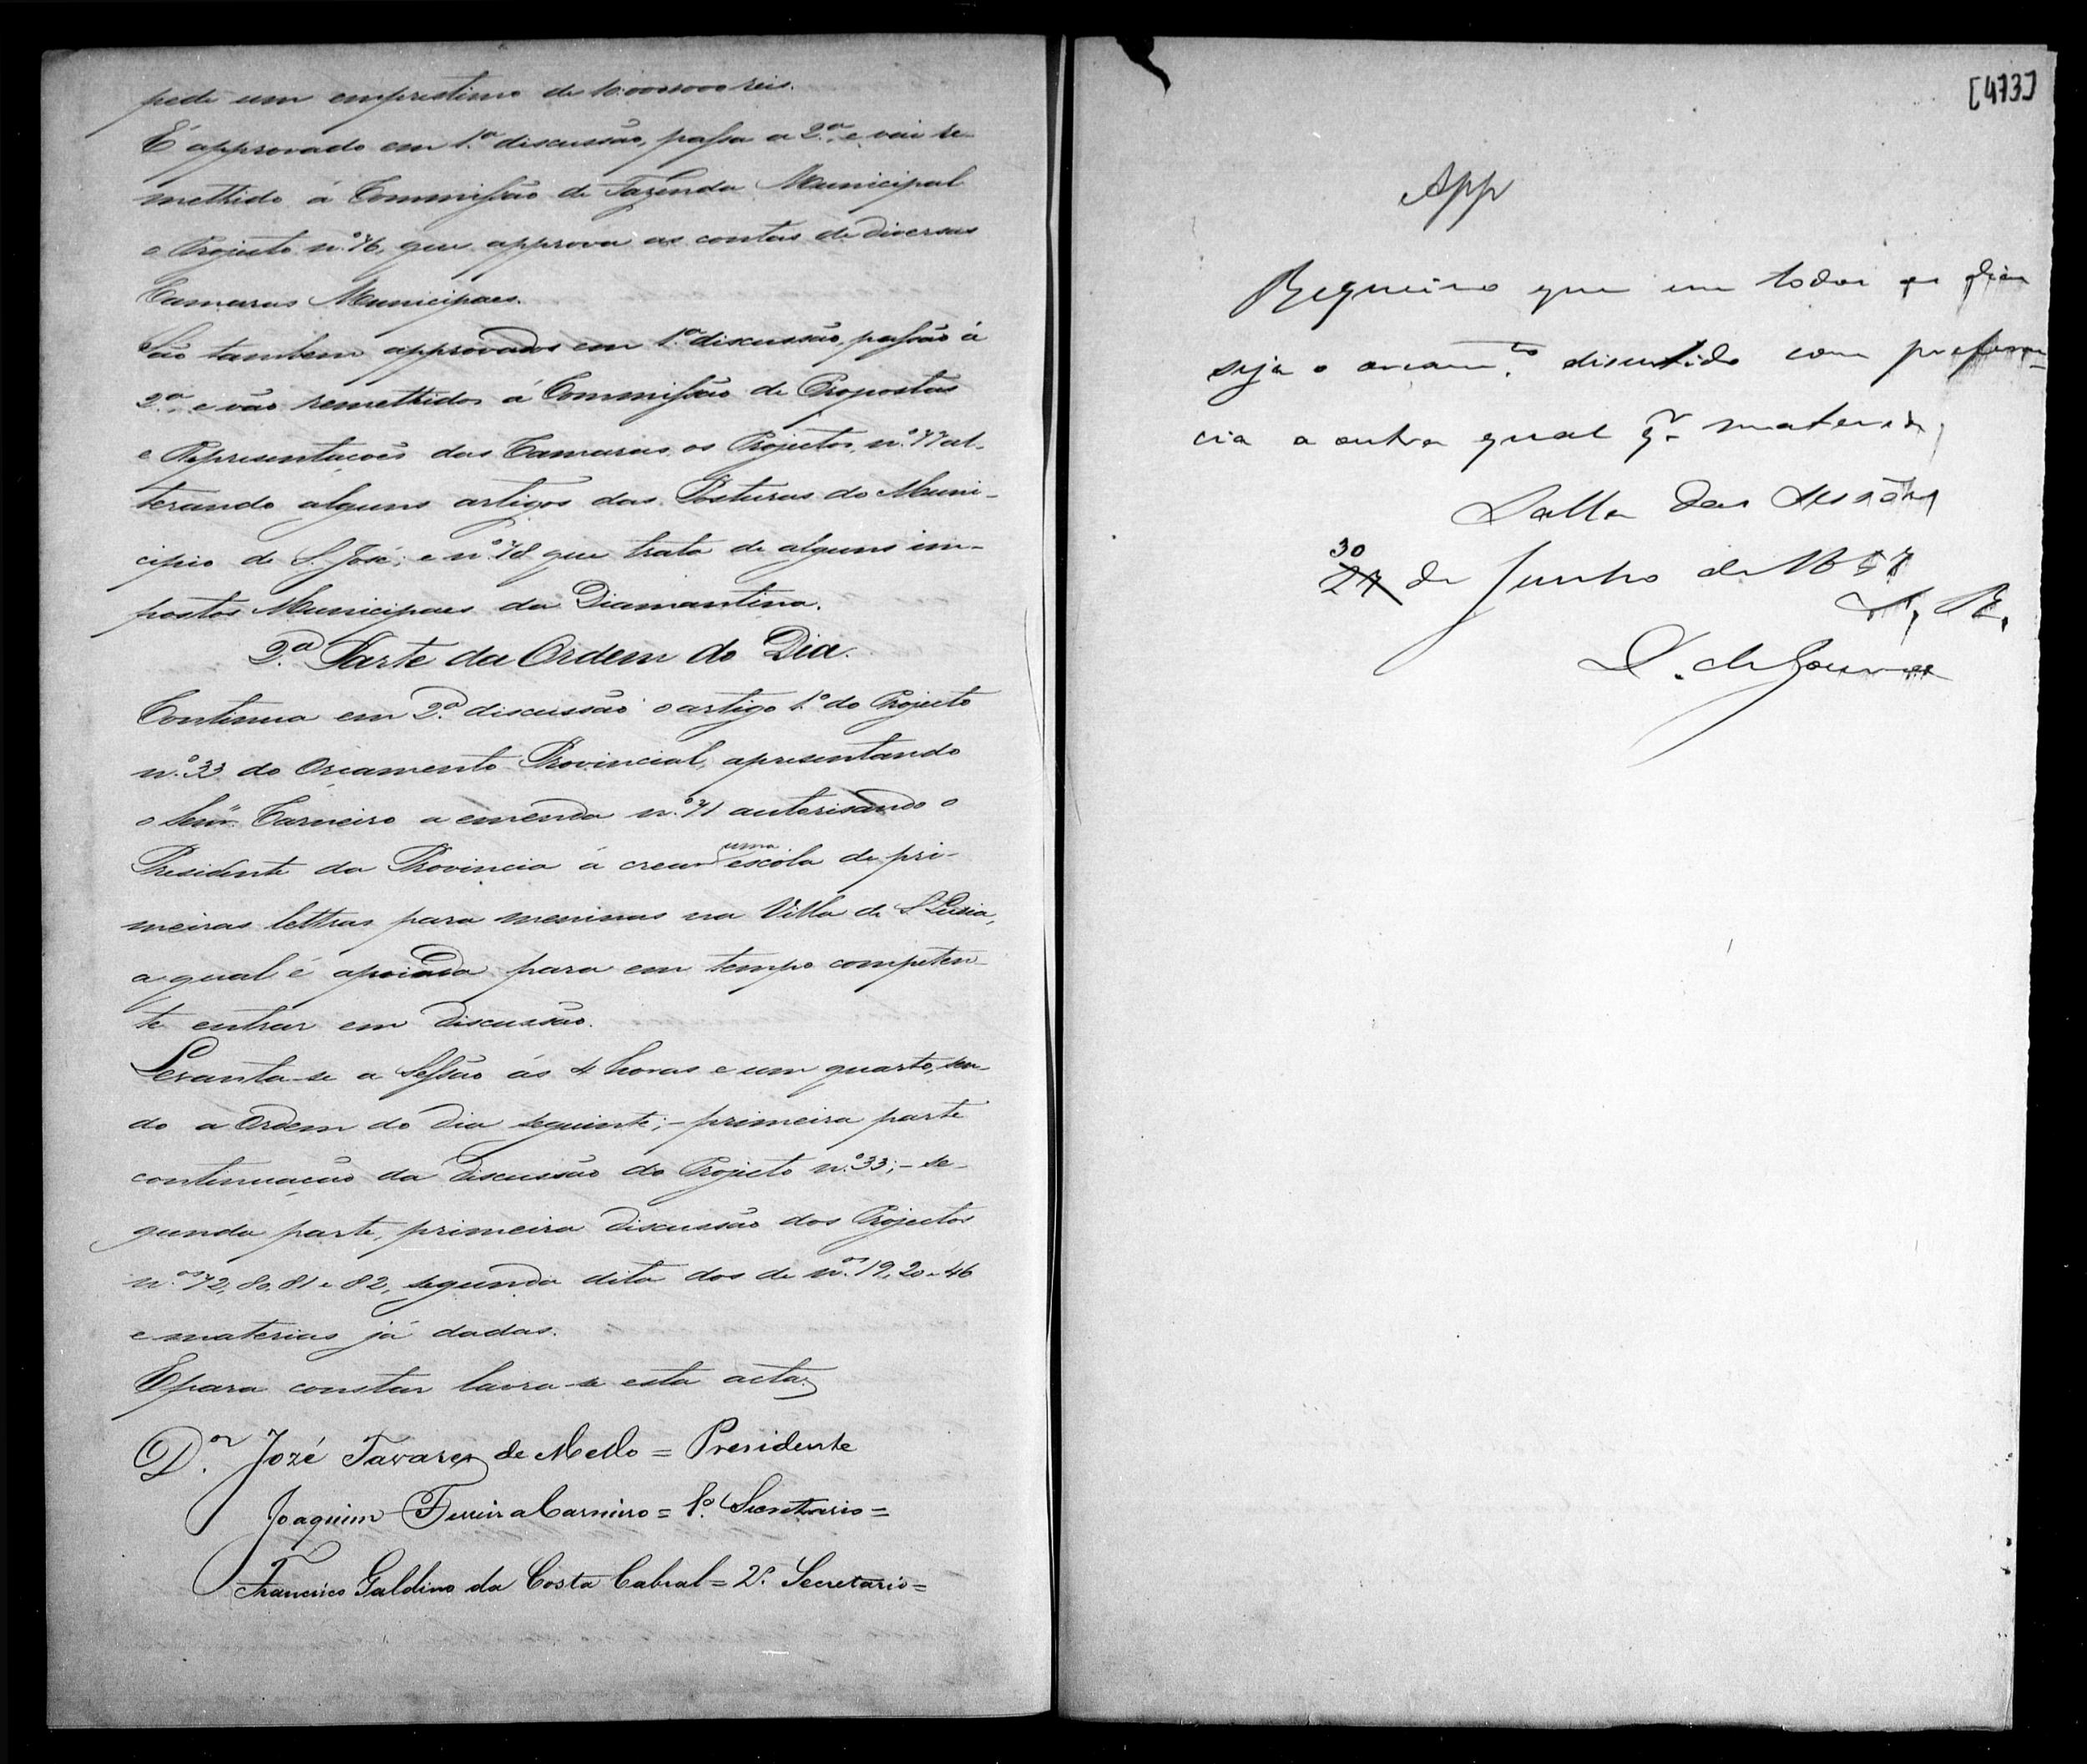 pede um emprestimo de 10:000$000 reis.
É approvado em 1.ª discussão, passa a 2.ª, e vai re-
mettido á Commissão de Fazenda Municipal
o Projecto n.º 76, que approva as contas de diversas
Camaras Municipaes.
São tambem approvados em 1.ª discussão, passão á
2.ª, e vão remettidos á Commissão de Propostas
e Representacoẽs das Camaras, os Projectos, n.º 77 al-
terando alguns artigos das Posturas do Muni-
cipio de S. José; e n.º 78 que trata de alguns im-
postos Municipaes da Diamantina.
2.ª Parte da Ordem do Dia.
Continua em 2.ª discussão o artigo 1.º do Projecto
n.º 33 do Orçamento Provincial, apresentando
o Senr. Carneiro a emenda n.º 71 autorisando o
Presidente da Provincia á crear uma escola de pri-
meiras lettras para meninas na Villa de S. Lusia,
a qual é apoiada para em tempo competen-
te entrar em discussão.
Levanta-se a Sessão ás 4 horas e um quarto, sen-
do a Ordem do dia seguinte; - primeira parte
continuação da discussão do Projecto n.º 33; - se-
gunda parte, primeira discussão dos Projectos
n.ºs 72, 80, 81 e 82, segunda dita dos de n.ºs 19, 20 e 46
e materias já dadas.
E para constar lavra-se esta acta.
D.or Jozé Tavares de Mello = Presidente
Joaquim Ferreira Carneiro = 1.º Secretario =
Francisco Galdino da Costa Cabral = 2.º Secretario =
[473]
App
Requeiro que em todos os dias
seja o orcam.to discutido com preferen-
cia a outra qual q.r materia
Salla das Sessões
30
27 de Junho de 1857
S. R.